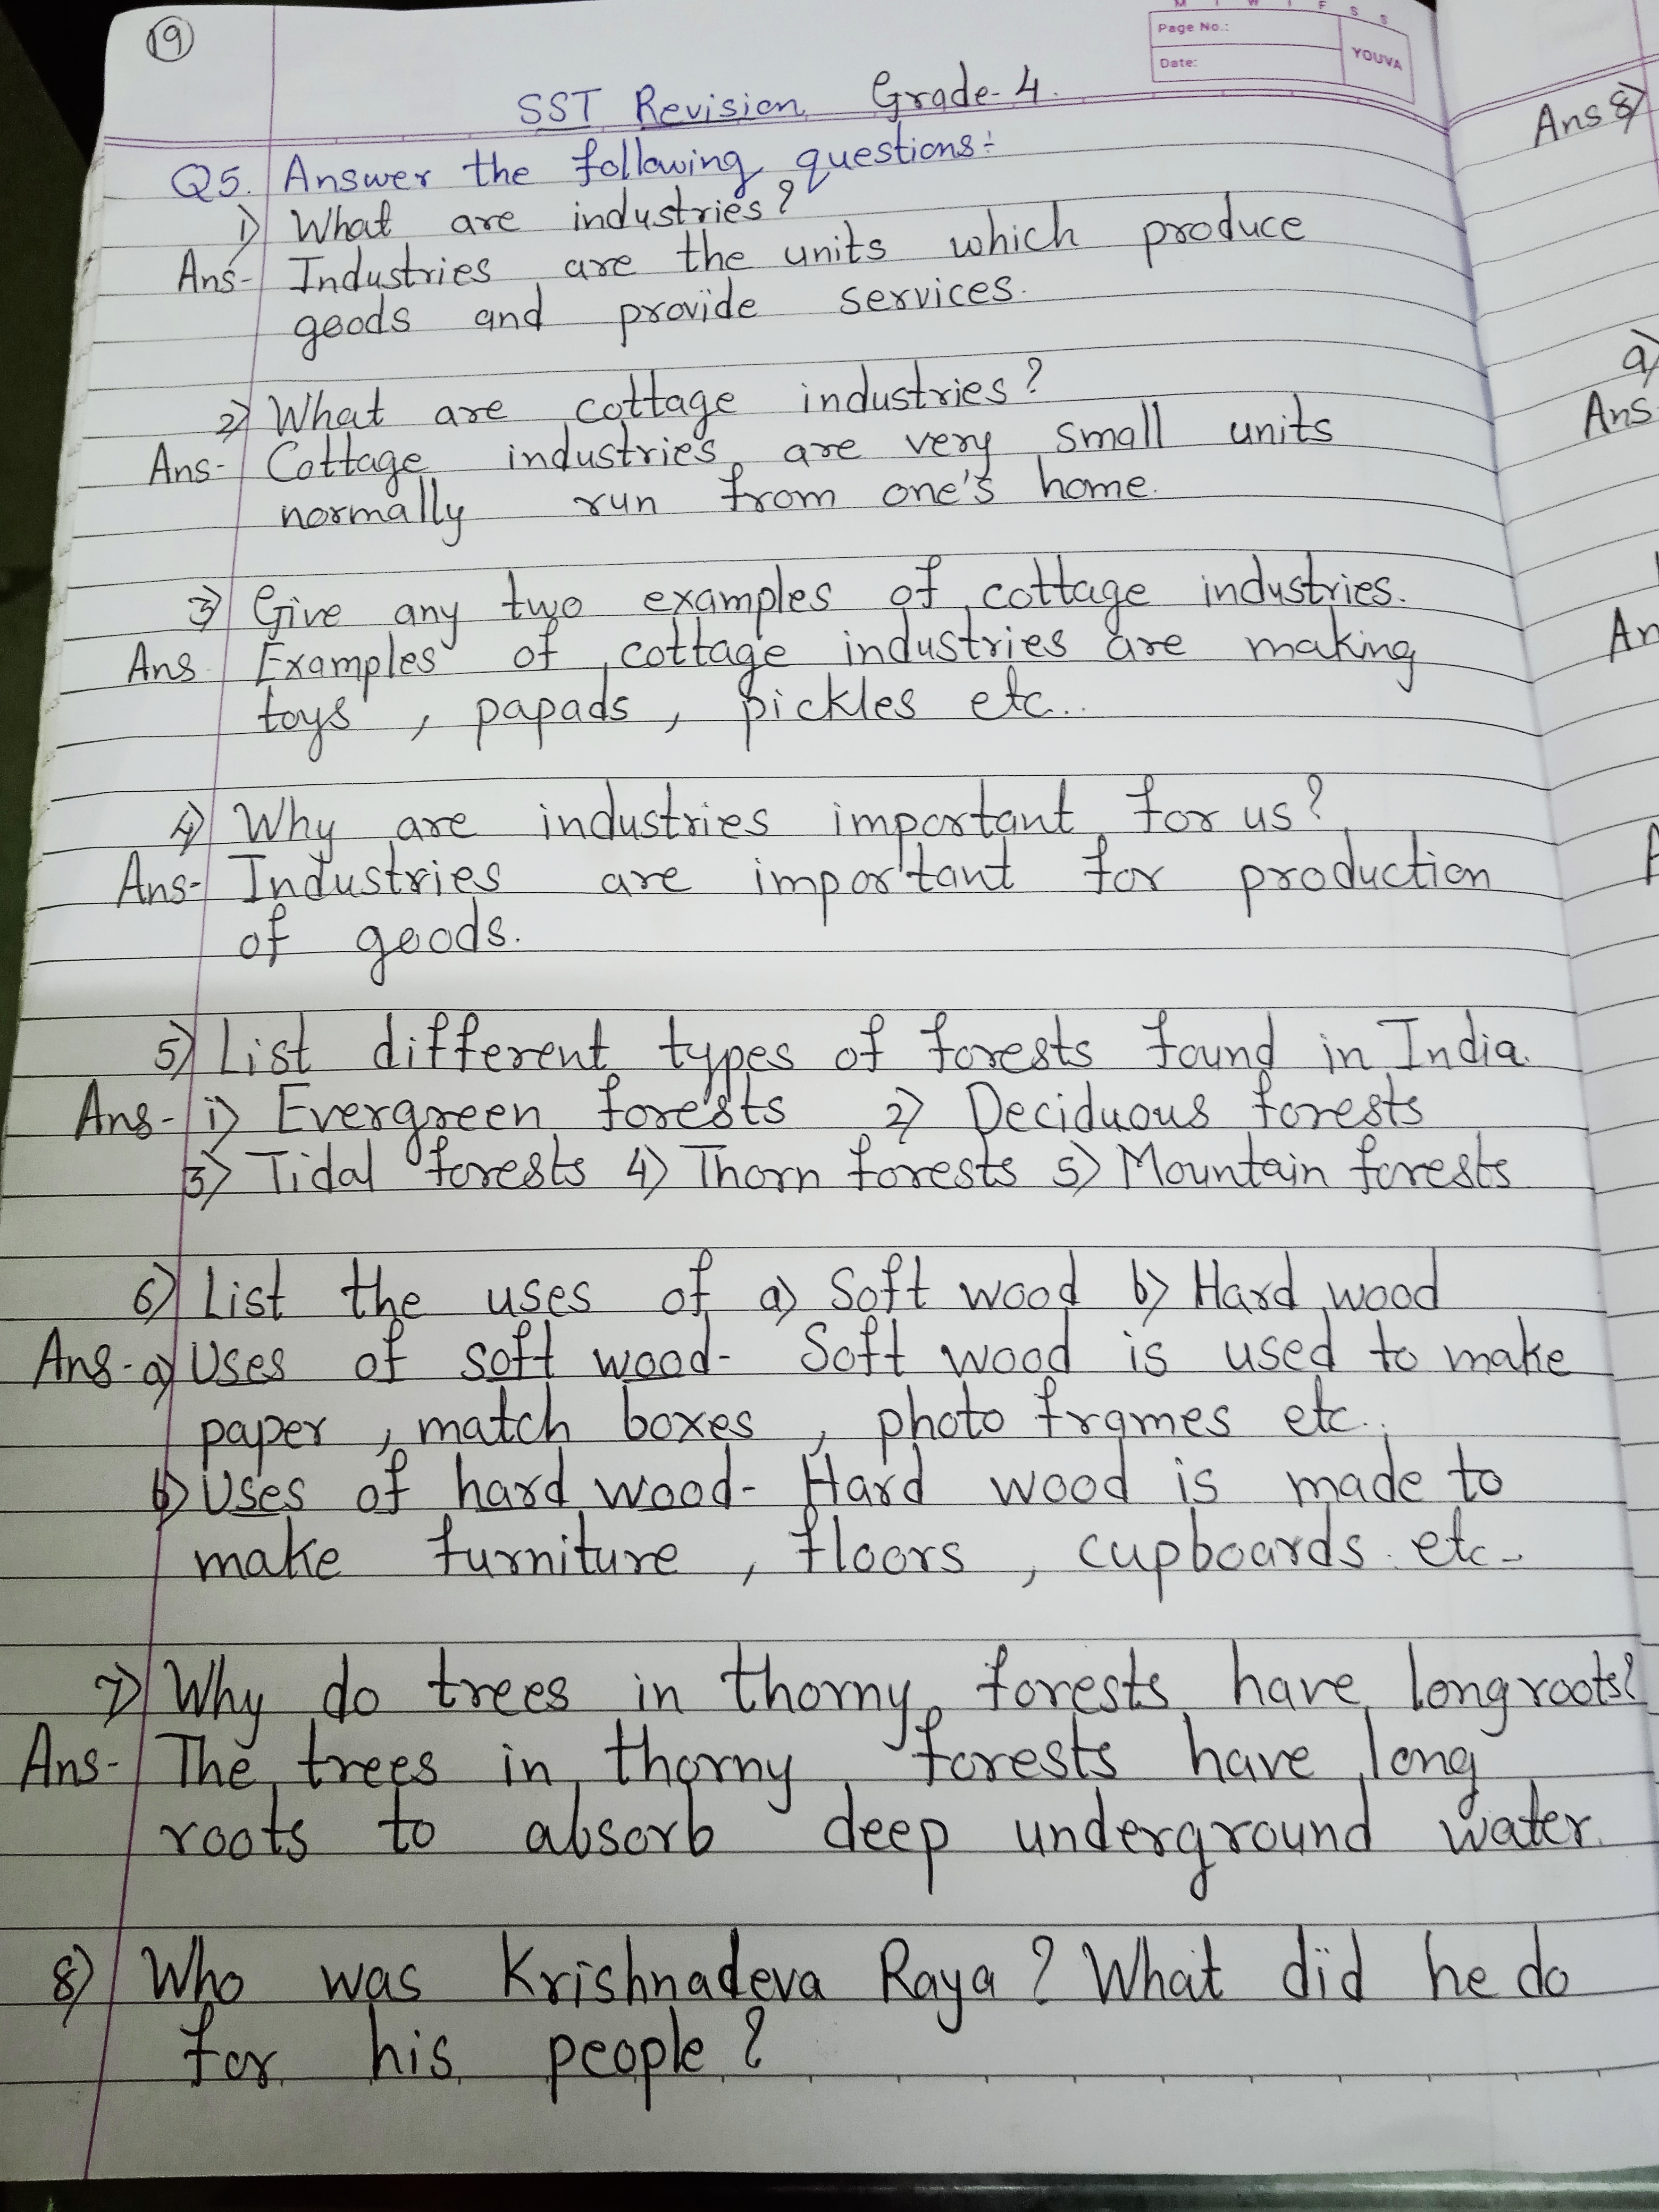 19
M T W T F S S
Page No.:
Date:
YOUVA
SST Revision Grade-4.
Q5. Answer the following questions:-
1) What are industries?
Ans- Industries are the units which produce
goods and provide services.
2) What are cottage industries?
Ans- Cottage industries are very small units
normally run from one's home.
3) Give any two examples of cottage industries.
Ans- Examples of cottage industries are making
toys, papads, pickles etc..
4) Why are industries important for us?
Ans- Industries are important for production
of goods.
5) List different types of forests found in India.
Ans- 1) Evergreen forests 2) Deciduous forests
3) Tidal forests 4) Thorn forests 5) Mountain forests
6) List the uses of a) Soft wood b) Hard wood
Ans- a) Uses of soft wood- Soft wood is used to make
paper, match boxes, photo frames etc..
b) Uses of hard wood- Hard wood is made to
make furniture, floors, cupboards etc-
7) Why do trees in thorny forests have long roots?
Ans- The trees in thorny forests have long
roots to absorb deep underground water.
8) Who was Krishnadeva Raya? What did he do
for his people?
Ans 8)
a)
Ans